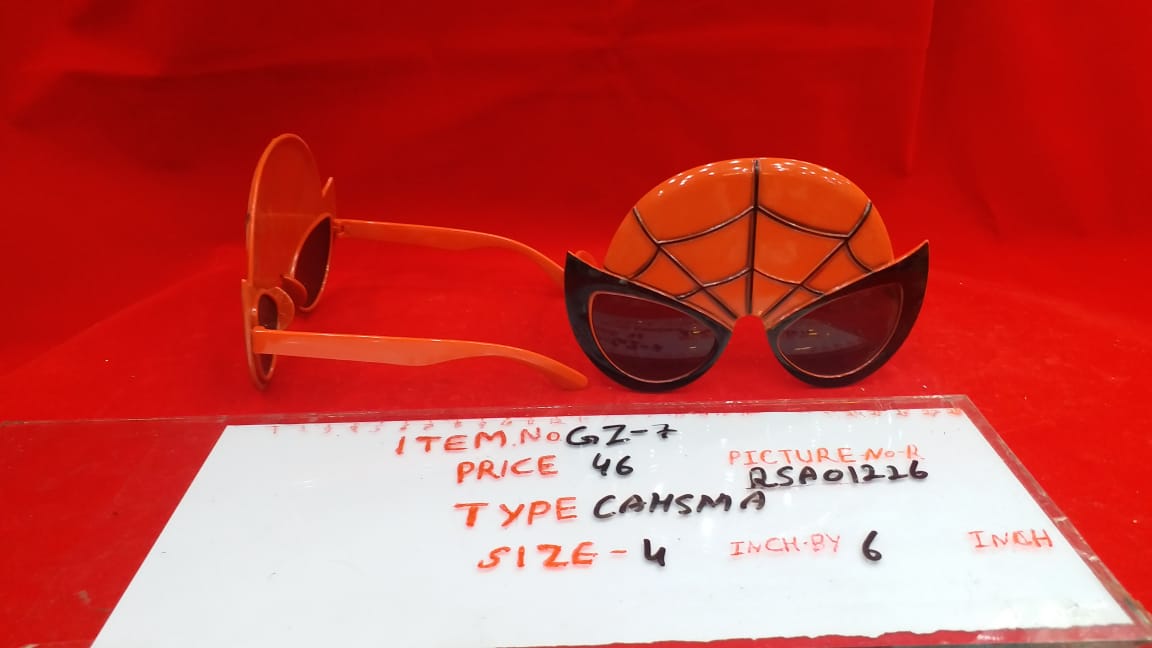 ITEM.No GZ-7
PRICE 46
PICTURE-No-R
RSA01226
TYPE CAHSMA
SIZE-4 INCH-BY 6 INCH